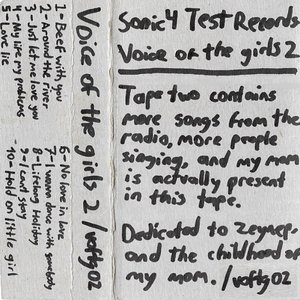 Sonic4 Test Records
Voice of the girls 2
Tape two contains
more songs from the
radio, more people
singing, and my mom
is actually present
in this tape.
Dedicated to Zeynep,
and the childhood of
my mom. /voftg02
Voice of the girls 2 /voftg02
1-Deer with you
2-Around the river
3-Just let me love you
4-My life my problems
5-Love lie
6-No love in love
7-I wanna dance with somebody
8-Lifelong Holiday
9-I cant stay
10-Hold on little girl